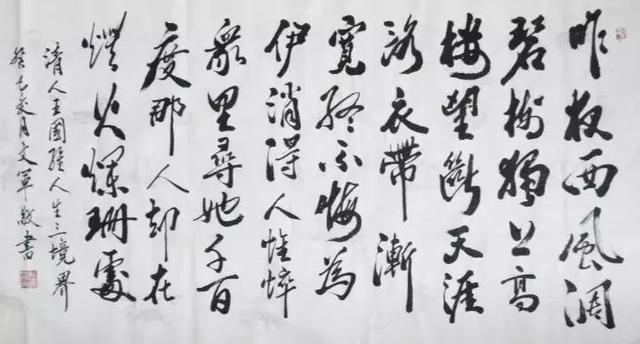 昨夜西風凋
碧樹獨上高
樓望斷天涯
路衣帶漸
寬終不悔為
伊消得人憔悴
眾里尋她千百
度那人却在
燈火爛珊處
清人王國維人生三境界
癸巳月文軍敬書